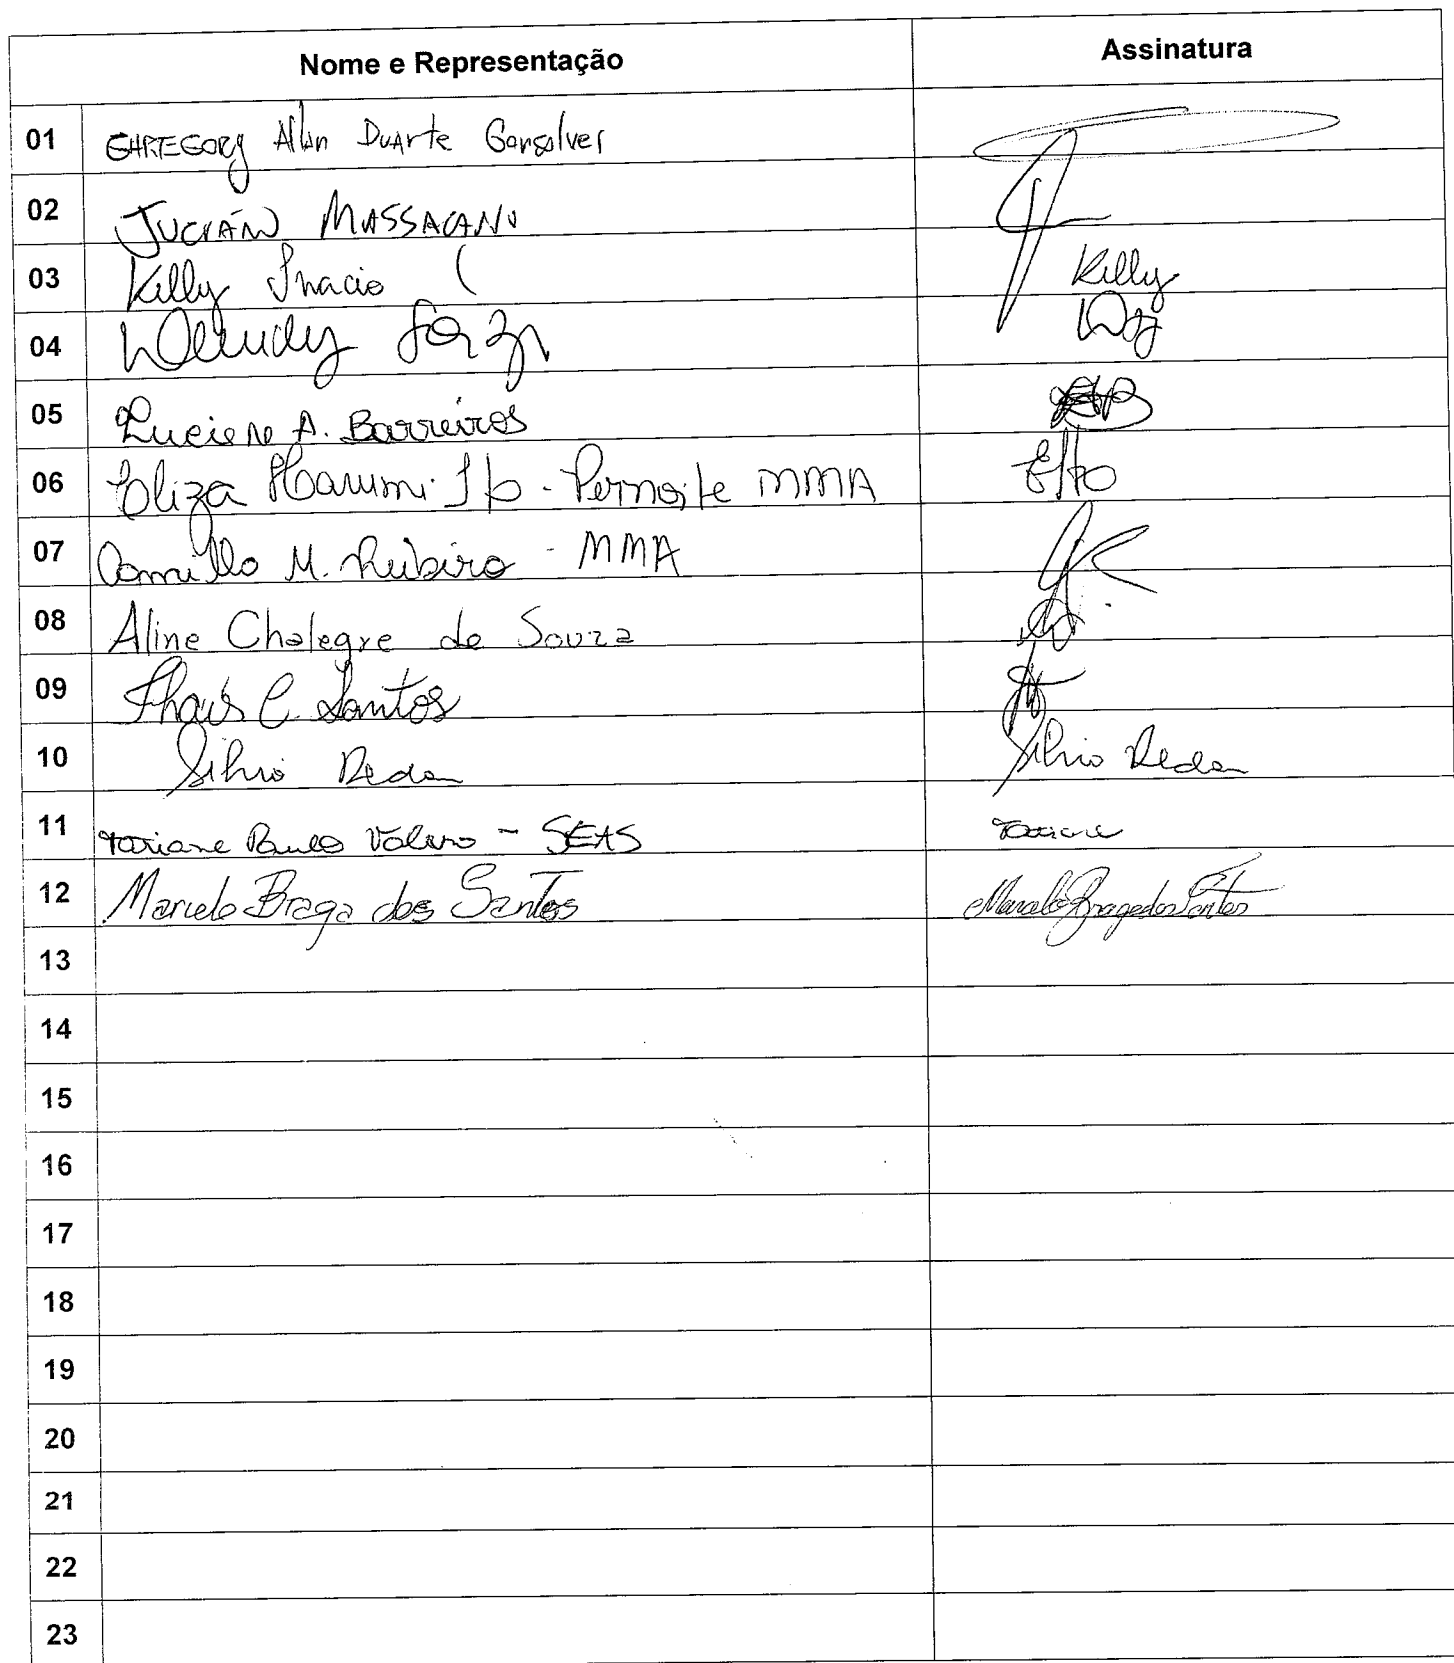 Nome e Representação Assinatura
01 GHREGORY Allan Duarte Gonsalves
02 MASSACANO
03 Killy Inacio Killy
04 Wendy
05 Luciene A. Barreiros
06 Eliza Harumi Ito - Pernoite MMA EIto
07 Camillo M. Ribeiro - MMA
08 Aline Chalegre de Souza
09 Thais C. Santos
10 Silvio Redon Silvio Redon
11 Tatiane Paulo Valero - SEAS Tatiane
12 Marcelo Braga dos Santos Marcelo Braga dos Santos
13
14
15
16
17
18
19
20
21
22
23